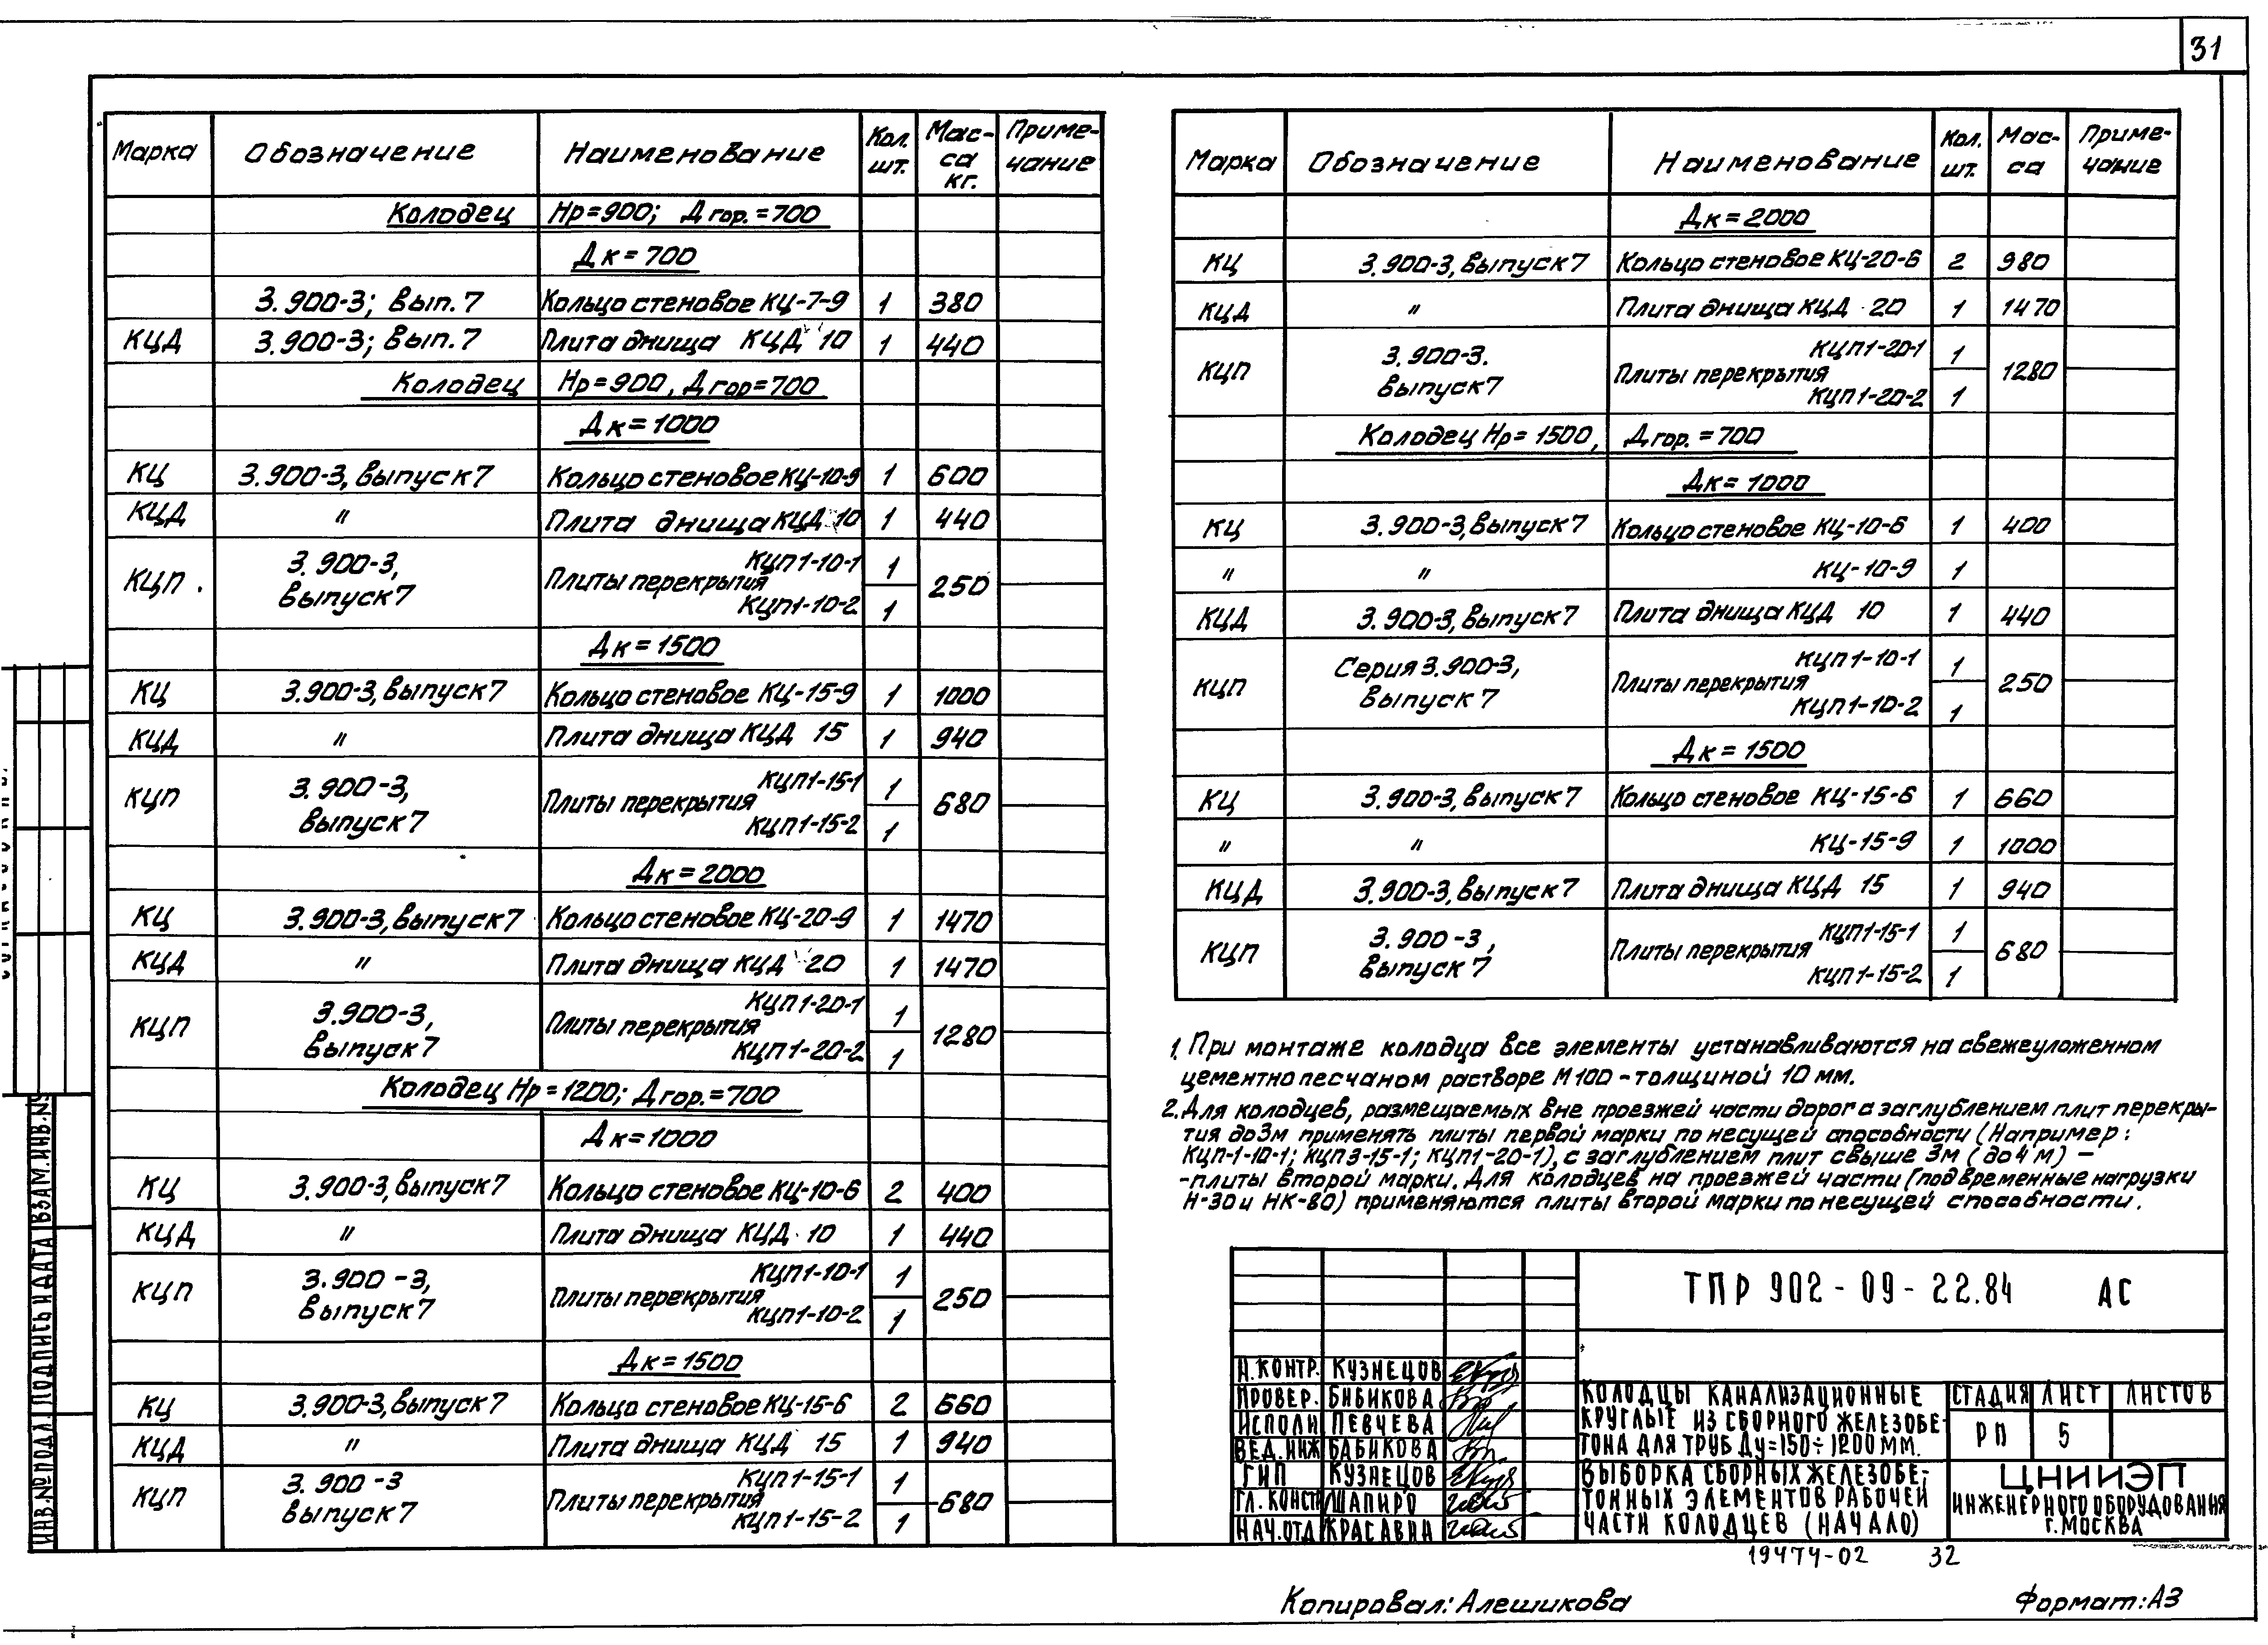 31
Марка Обозначение Наименование Кол. шт. Мас-са кг. Приме-чание
Колодец Нр=900; Дгор.=700
Дк=700
3.900-3; Вып.7 Кольцо стеновое КЦ-7-9 1 380
КЦД 3.900-3; Вып.7 Плита днища КЦД 10 1 440
Колодец Нр=900, Дгор=700
Дк=1000
КЦ 3.900-3, выпуск 7 Кольцо стеновое КЦ-10-9 1 600
КЦД " Плита днища КЦД 10 1 440
КЦП1-10-1 1
КЦП. 3.900-3, выпуск 7 Плиты перекрытия 250
КЦП1-10-2 1
Дк=1500
КЦ 3.900-3, выпуск 7 Кольцо стеновое КЦ-15-9 1 1000
КЦД " Плита днища КЦД 15 1 940
КЦП1-15-1 1
КЦП 3.900-3, выпуск 7 Плиты перекрытия 680
КЦП1-15-2 1
Дк=2000
КЦ 3.900-3, выпуск 7 Кольцо стеновое КЦ-20-9 1 1470
КЦД " Плита днища КЦД 20 1 1470
КЦП1-20-1 1
КЦП 3.900-3, выпуск 7 Плиты перекрытия 1280
КЦП1-20-2 1
Колодец Нр=1200; Дгор.=700
Дк=1000
КЦ 3.900-3, выпуск 7 Кольцо стеновое КЦ-10-6 2 400
КЦД " Плита днища КЦД 10 1 440
КЦП1-10-1 1
КЦП 3.900-3, выпуск 7 Плиты перекрытия 250
КЦП1-10-2 1
Дк=1500
КЦ 3.900-3, выпуск 7 Кольцо стеновое КЦ-15-6 2 660
КЦД " Плита днища КЦД 15 1 940
КЦП1-15-1 1
КЦП 3.900-3 выпуск 7 Плиты перекрытия 680
КЦП1-15-2 1
Марка Обозначение Наименование Кол. шт. Мас-са Приме-чание
Дк=2000
КЦ 3.900-3, выпуск 7 Кольцо стеновое КЦ-20-6 2 980
КЦД " Плита днища КЦД 20 1 1470
КЦП1-20-1 1
КЦП 3.900-3. выпуск 7 Плиты перекрытия 1280
КЦП1-20-2 1
Колодец Нр=1500, Дгор.=700
Дк=1000
КЦ 3.900-3, выпуск 7 Кольцо стеновое КЦ-10-6 1 400
" " КЦ-10-9 1
КЦД 3.900-3, выпуск 7 Плита днища КЦД 10 1 440
КЦП1-10-1 1
КЦП Серия 3.900-3, выпуск 7 Плиты перекрытия 250
КЦП1-10-2 1
Дк=1500
КЦ 3.900-3, выпуск 7 Кольцо стеновое КЦ-15-6 1 660
" " КЦ-15-9 1 1000
КЦД 3.900-3, выпуск 7 Плита днища КЦД 15 1 940
КЦП1-15-1 1
КЦП 3.900-3, выпуск 7 Плиты перекрытия 680
КЦП1-15-2 1
1. При монтаже колодца все элементы устанавливаются на свежеуложенном
цементнопесчаном растворе М100 - толщиной 10 мм.
2. Для колодцев, размещаемых вне проезжей части дорог с заглублением плит перекры-
тия до 3м применять плиты первой марки по несущей способности (Например:
КЦП-1-10-1; КЦП3-15-1; КЦП1-20-1), с заглублением плит свыше 3м (до 4м) —
-плиты второй марки. Для колодцев на проезжей части (под временные нагрузки
Н-30 и НК-80) применяются плиты второй марки по несущей способности.
ТПР 902-09-22.84 АС
Н.КОНТР. КУЗНЕЦОВ
ПРОВЕР. БИБИКОВА
ИСПОЛН ПЕВЧЕВА
ВЕД.ИНЖ БАБИКОВА
ГИП КУЗНЕЦОВ
ГЛ.КОНСТ ШАПИРО
НАЧ.ОТД КРАСАВИН
КОЛОДЦЫ КАНАЛИЗАЦИОННЫЕ
КРУГЛЫЕ ИЗ СБОРНОГО ЖЕЛЕЗОБЕ-
ТОНА ДЛЯ ТРУБ Ду=150÷1200ММ.
ВЫБОРКА СБОРНЫХ ЖЕЛЕЗОБЕ-
ТОННЫХ ЭЛЕМЕНТОВ РАБОЧЕЙ
ЧАСТИ КОЛОДЦЕВ (НАЧАЛО)
СТАДИЯ ЛИСТ ЛИСТОВ
РП 5
ЦНИИЭП
ИНЖЕНЕРНОГО ОБОРУДОВАНИЯ
Г.МОСКВА
19474-02 32
Копировал: Алешикова Формат: А3
ИНВ.№ПОДЛ. ПОДПИСЬ И ДАТА ВЗАМ.ИНВ.№